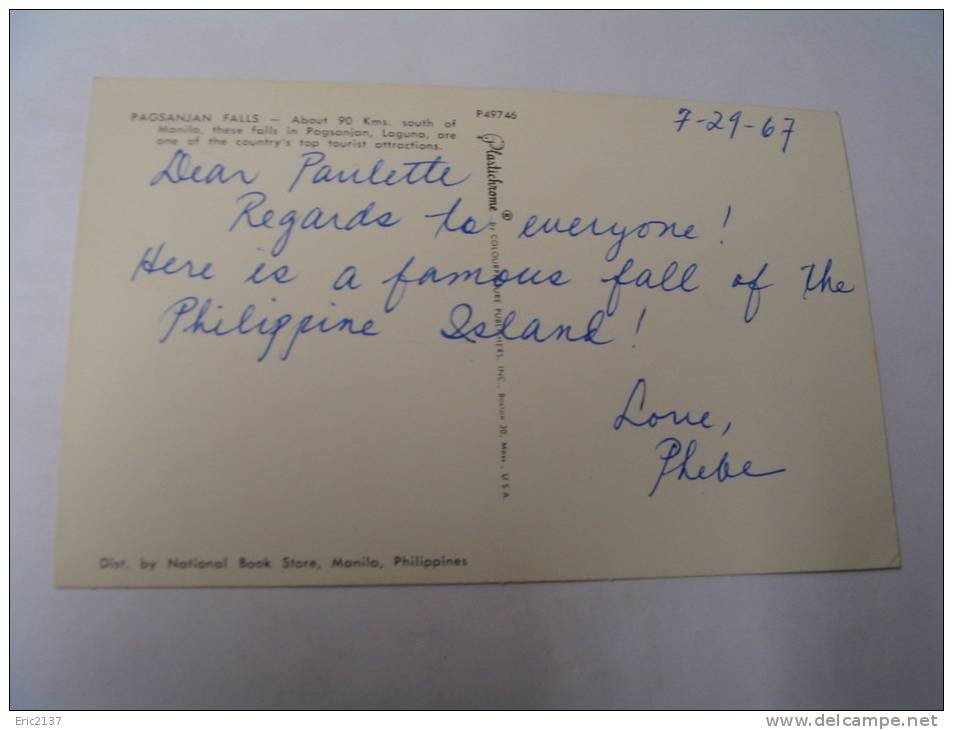 PAGSANJAN FALLS — About 90 Kms. south of
Manila, these falls in Pagsanjan, Laguna, are
one of the country's top tourist attractions.
P49746
7-29-67
Dear Paulette
Regards to everyone!
Here is a famous fall of the
Philippine Island!
Love,
Phebe
Plastichrome® by COLOURPICTURE PUBLISHERS, INC., Boston 30, Mass., U.S.A.
Dist. by National Book Store, Manila, Philippines
Eric2137
www.delcampe.net